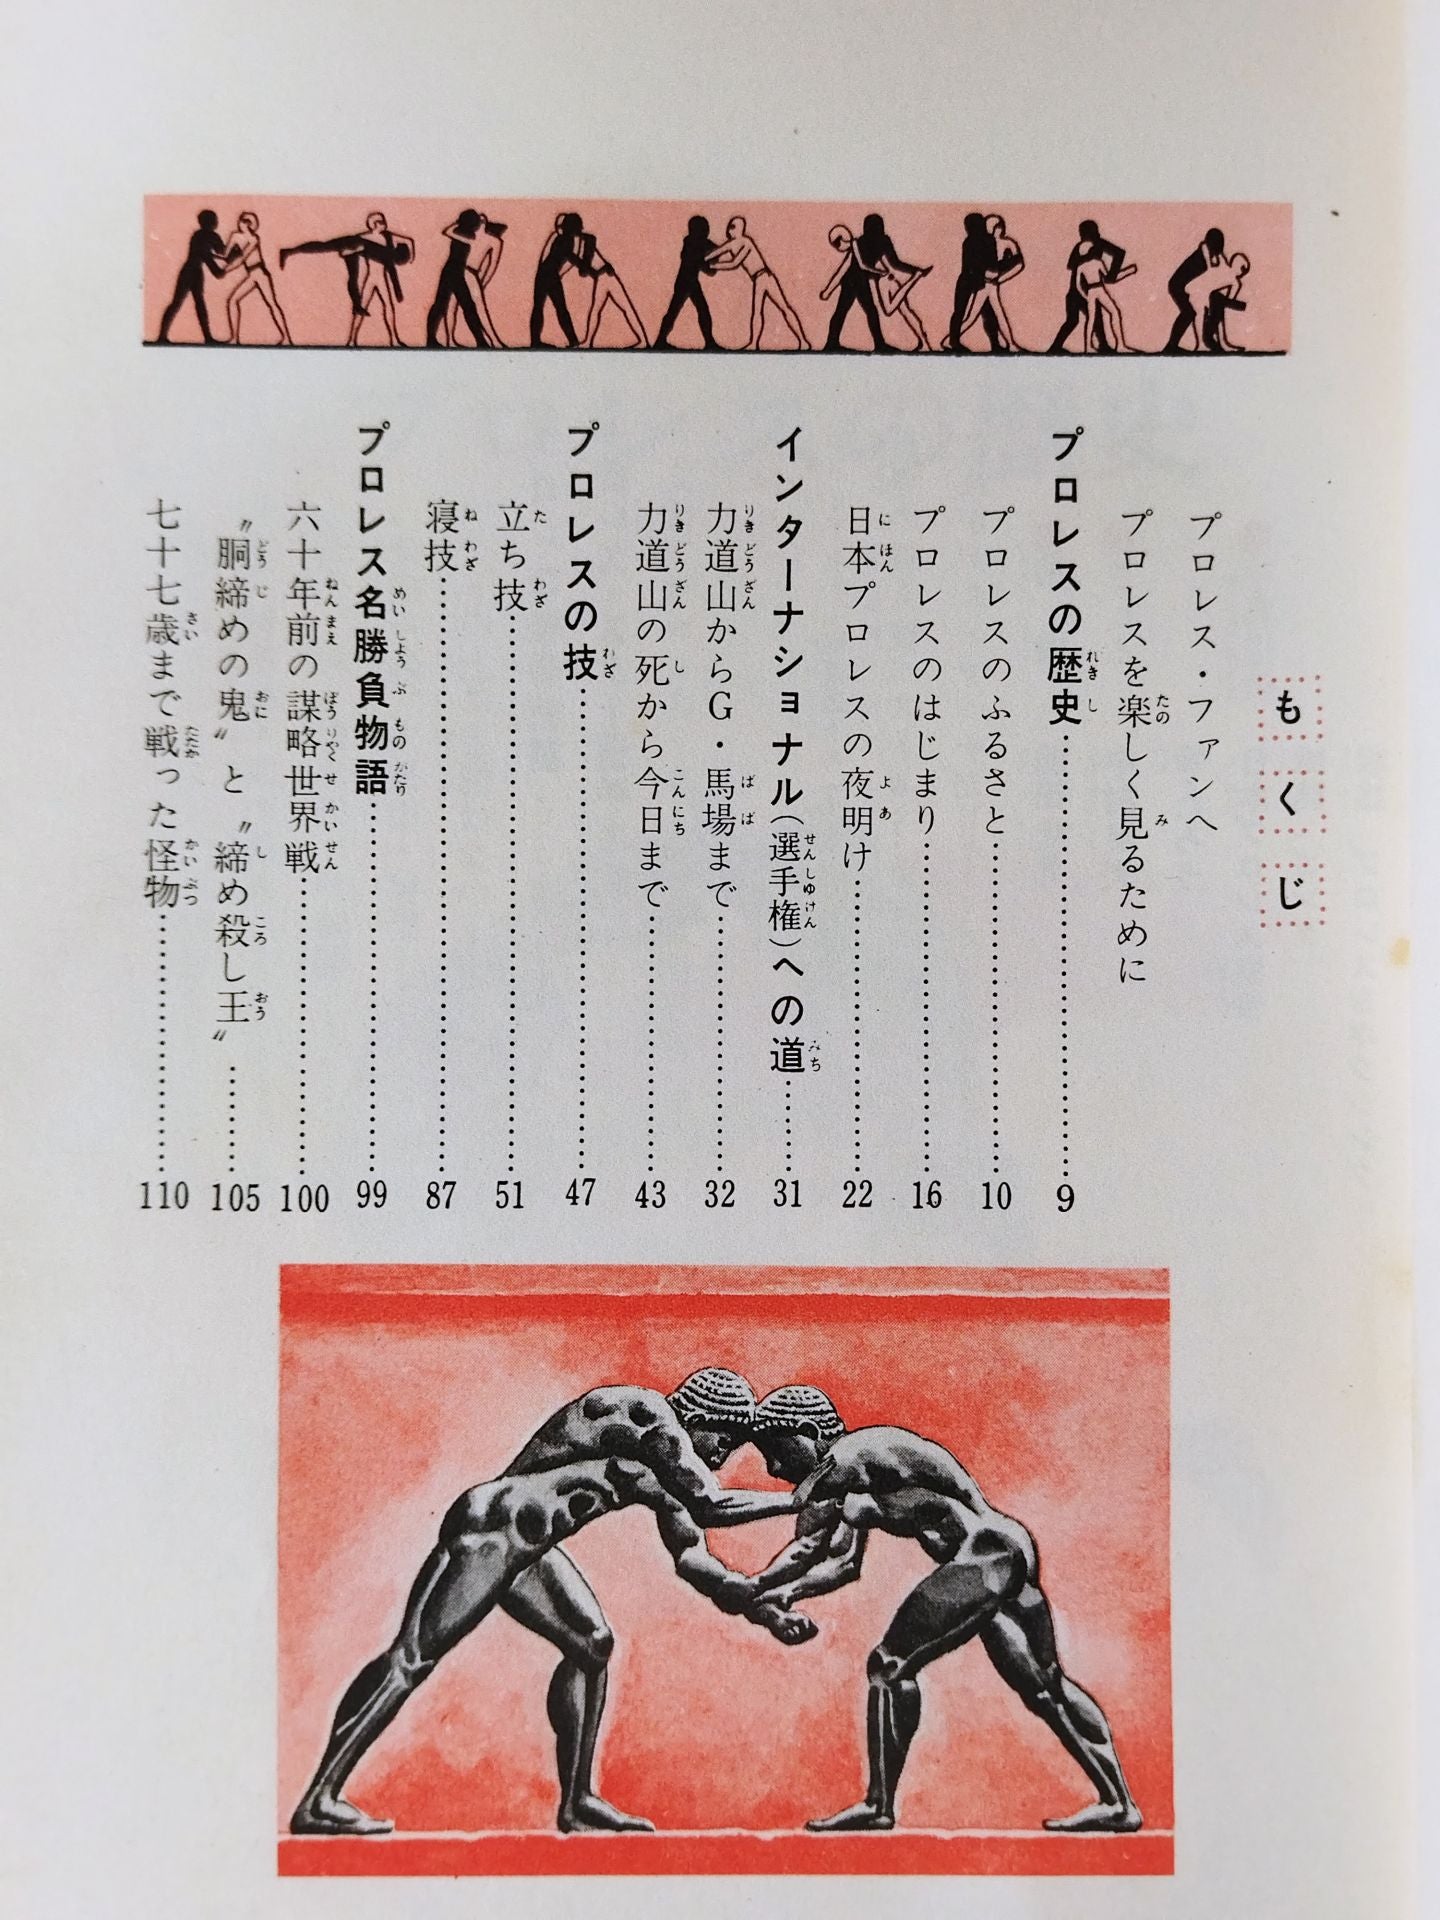 もくじ
プロレス・ファンへ
プロレスを楽しく見るために
プロレスの歴史……9
プロレスのふるさと……10
プロレスのはじまり……16
日本プロレスの夜明け……22
インターナショナル(選手権)への道……31
力道山からG・馬場まで……32
力道山の死から今日まで……43
プロレスの技……47
立ち技……51
寝技……87
プロレス名勝負物語……99
六十年前の謀略世界戦……100
〝胴締めの鬼〟と〝締め殺し王〟……105
七十七歳まで戦った怪物……110